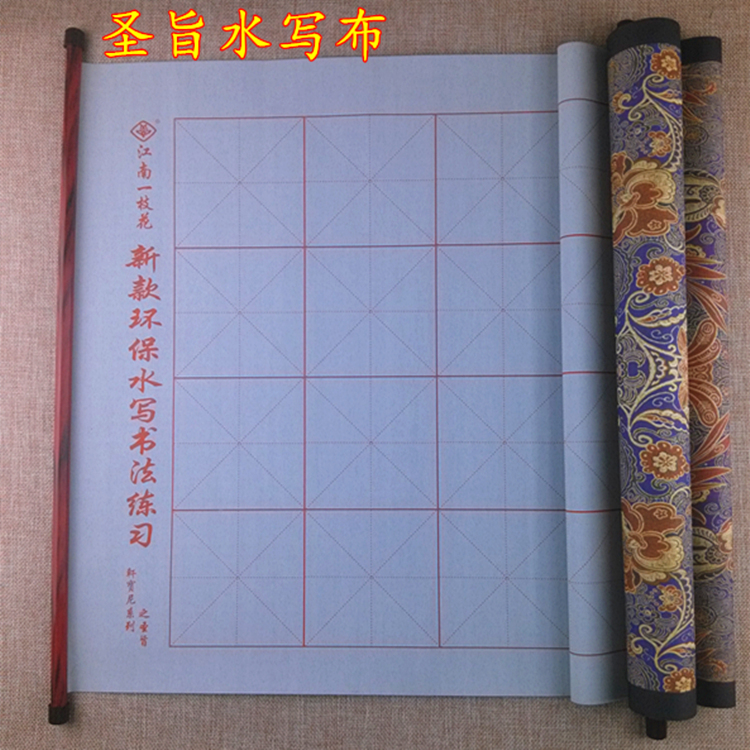 圣旨水写布
江南一枝花
新款环保水写书法练习
轩宝尼系列
之圣旨